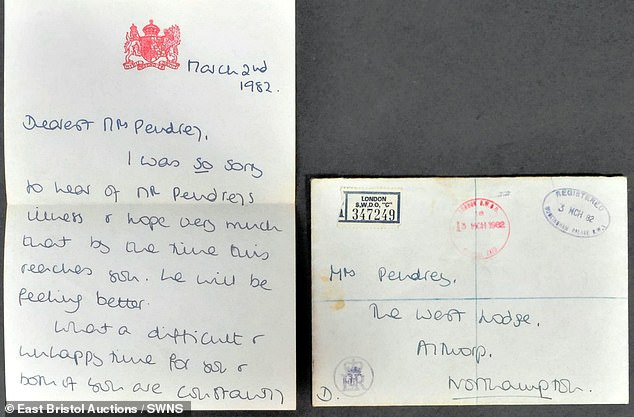 March 2nd
1982.
Dearest Mrs Pendrey,
I was so sorry
to hear of Mr Pendreys
illness & hope very much
that by the time this
reaches you, he will be
feeling better.
What a difficult &
unhappy time for you &
both of you are constantly
LONDON
S.W.D.O, "C"
347249
3 MCH 1982
REGISTERED
3 MCH 82
BUCKINGHAM PALACE S.W.1
Mrs Pendrey,
The West Lodge,
Althorp,
Northampton.
D.
© East Bristol Auctions / SWNS